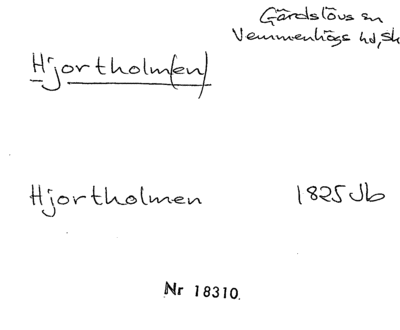 Gärdslövs sn
Vemmenhögs hd, Sk
Hjortholm(en)
Hjortholmen 1825 Jb
Nr 18310